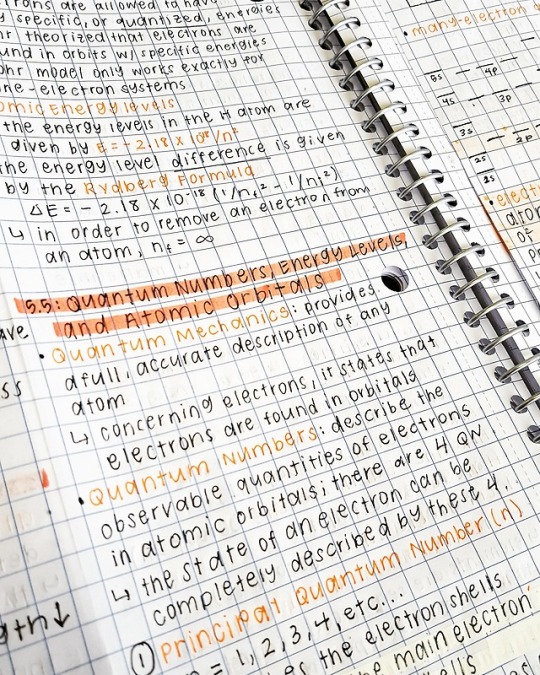 trons are allowed to have
y specific, or quantized, energies
hr theorized that electrons are
und in orbits w/ specific energies
ohr model only works exactly for
ne-electron systems
omic Energy levels
the energy levels in the H atom are
given by E = -2.18 x 10
the energy level difference is given
by the Rydberg Formula
ΔE = - 2.18 x 10⁻¹⁸ (1/nf² - 1/ni²)
↳ in order to remove an electron from
an atom, nf = ∞
5.5: Quantum Numbers, Energy Levels,
and Atomic Orbitals
• Quantum Mechanics: provides
a full, accurate description of any
atom
↳ concerning electrons, it states that
electrons are found in orbitals
• Quantum Numbers: describe the
observable quantities of electrons
in atomic orbitals; there are 4 QN
↳ the state of an electron can be
completely described by these 4.
① Principal Quantum Number (n)
= 1, 2, 3, 4, etc...
es the electron shells
he main electron
ells
ave
ss
ath↓
• many-electron
5s 4p
4s 3p
3s 2p
2s
1s
• elect
atom
of